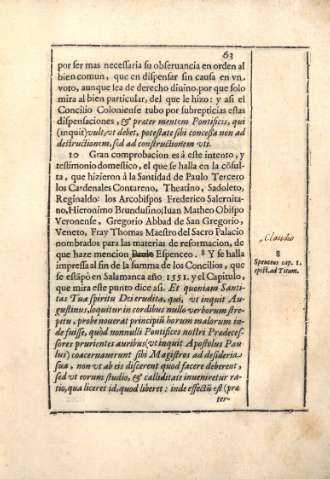 63
por ser mas necessaria su obseruancia en orden al
bien comun, que en dispensar sin causa en vn
voto, aunque sea de derecho diuino, por que solo
mira al bien particular, del que le hizo: y asi el
Concilio Coloniense tubo por subrepticias estas
dispensaciones, & præter mentem Pontificis, qui
(inquit) vult, vt debet, potestate sibi concessa non ad
destructionem, sed ad constructionem vti.
10 Gran comprobacion es à este intento, y
testimonio domestico, el que se halla en la cōsul
ta, que hizieron à la Santidad de Paulo Tercero
los Cardenales Contareno, Theatino, Sadoleto,
Reginaldo: los Arcobispos Frederico Salernita-
no, Hieronimo Brundusino; Iuan Matheo Obispo
Veronense, Gregorio Abbad de San Gregorio,
Veneto, Fray Thomas Maestro del Sacro Palacio
nombrados para las materias de reformacion, de
que haze mencion Paulo Espenceo. 8 Y se halla
impressa al fin de la summa de los Concilios, que
se estāpò en Salamanca año 1551. y el Capitulo,
que mira este punto dice asi. Et quoniam Sancti-
tas Tua spiritu Dei erudita, qui, vt inquit Au-
gustinus, loquitur in cordibus nullo verborum stre-
pitu, probe nouerat principiū horum malorum in-
de fuisse, quòd nonnulli Pontifices nostri Predeces-
sores prurientes auribus (vt inquit Apostolus Pau
lus) coaceruauerunt sibi Magistros ad desideria
sua, non vt ab eis discerent quod facere deberent,
sed vt eorum studio, & calliditate inueniretur ra-
tio, qua liceret id, quod liberet: inde effectū est (præ
ter-
Claudio
8
Spenceus cap. 1.
epist. ad Titum.